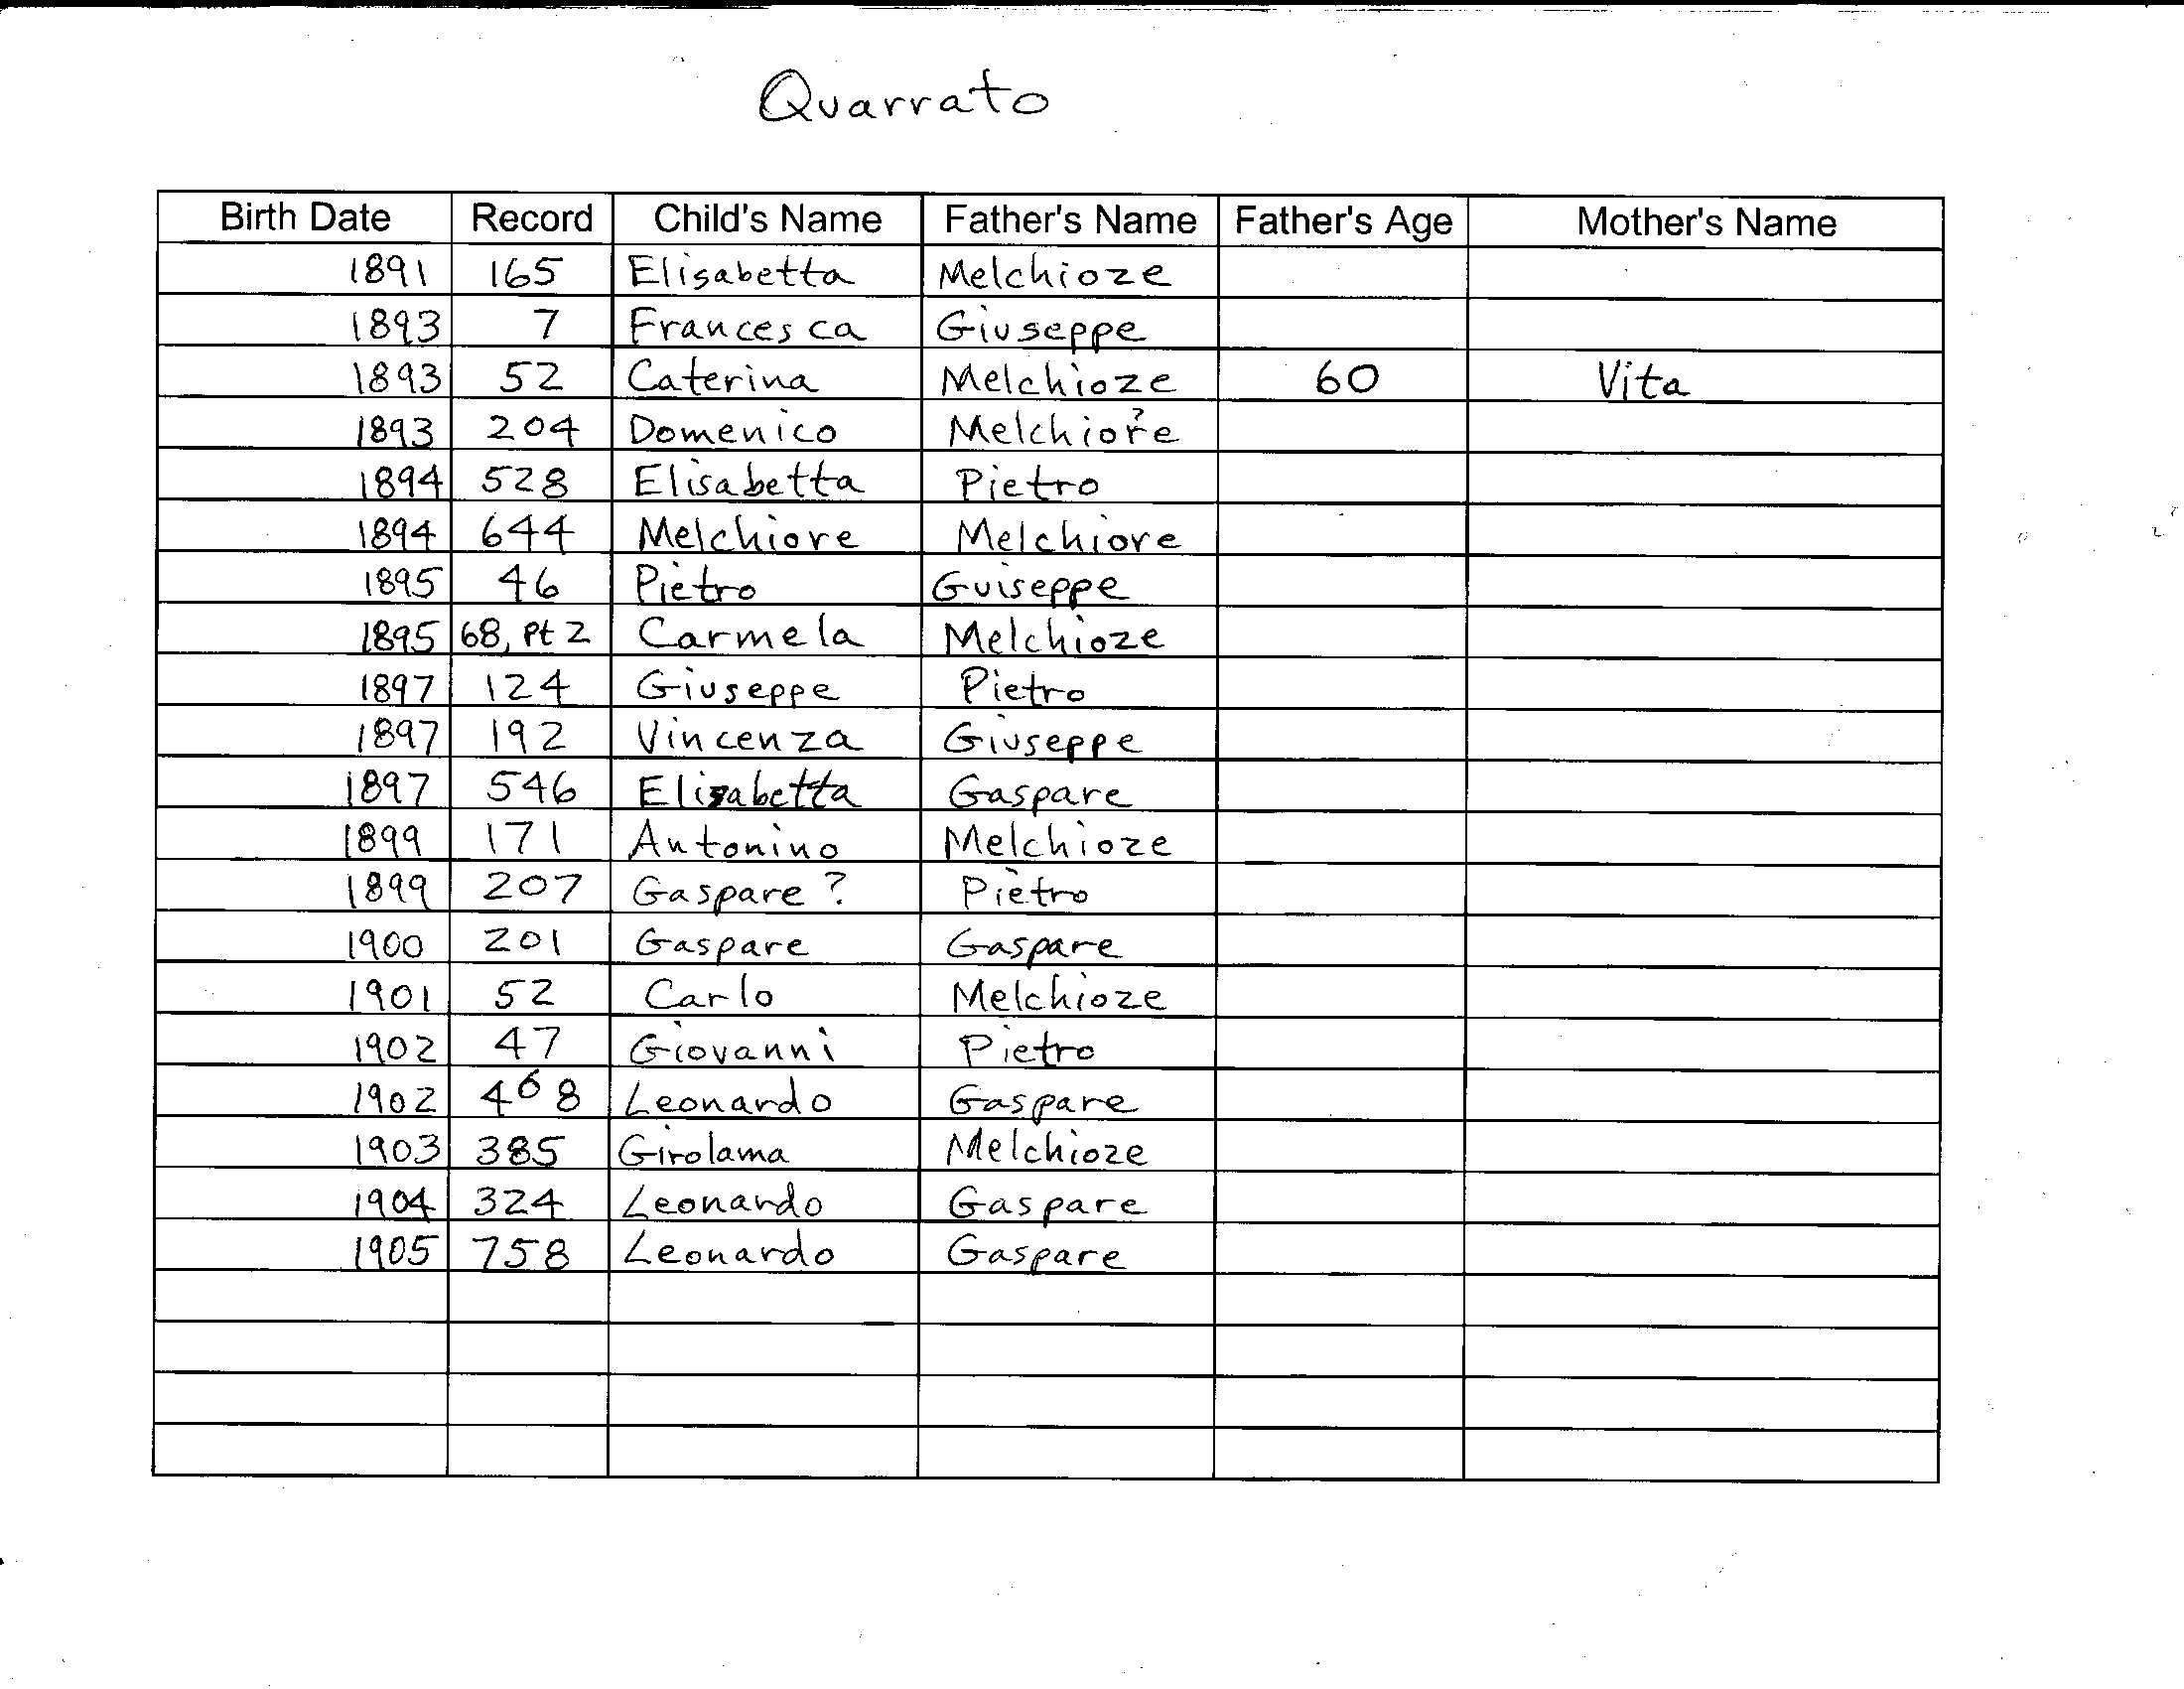 Quarrato
Birth Date Record Child's Name Father's Name Father's Age Mother's Name
1891 165 Elisabetta Melchioze
1893 7 Francesca Giuseppe
1893 52 Caterina Melchioze 60 Vita
1893 204 Domenico Melchior?e
1894 528 Elisabetta Pietro
1894 644 Melchiore Melchiore
1895 46 Pietro Guiseppe
1895 68, Pt 2 Carmela Melchioze
1897 124 Giuseppe Pietro
1897 192 Vincenza Giuseppe
1897 546 Elisabetta Gaspare
1899 171 Antonino Melchioze
1899 207 Gaspare ? Pietro
1900 201 Gaspare Gaspare
1901 52 Carlo Melchioze
1902 47 Giovanni Pietro
1902 468 Leonardo Gaspare
1903 385 Girolama Melchioze
1904 324 Leonardo Gaspare
1905 758 Leonardo Gaspare